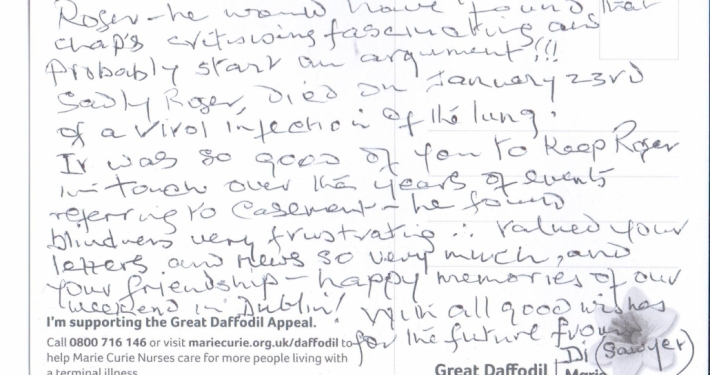 Roger - he would have found that
chap's critising fascinating and
Probably start an argument!!!
Sadly Roger, Died on January 23rd
of a virol infection of the lung.
It was so good of you to keep Roger
in touch over the years of events
referring to Casement - he found
blindness very frustrating ∴ valued your
letters and news so very much, and
your friendship - happy memories of our
weekend in Dublin! With all good wishes
for the future from
Di (Sawyer)
I'm supporting the Great Daffodil Appeal.
Call 0800 716 146 or visit mariecurie.org.uk/daffodil to
help Marie Curie Nurses care for more people living with
a terminal illness
Great Daffodil
Marie